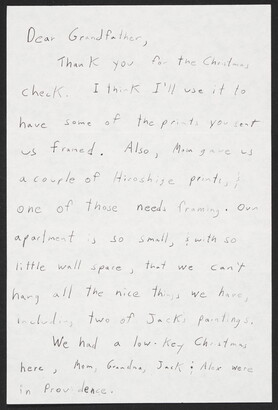 Dear Grandfather,
Thank you for the Christmas
check. I think I'll use it to
have some of the prints you sent
us framed. Also, Mom gave us
a couple of Hiroshige prints, &
one of those needs framing. Our
apartment is so small, & with so
little wall space, that we can't
hang all the nice things we have,
including two of Jack's paintings.
We had a low-key Christmas
here, Mom, Grandma, Jack & Alex were
in Providence.